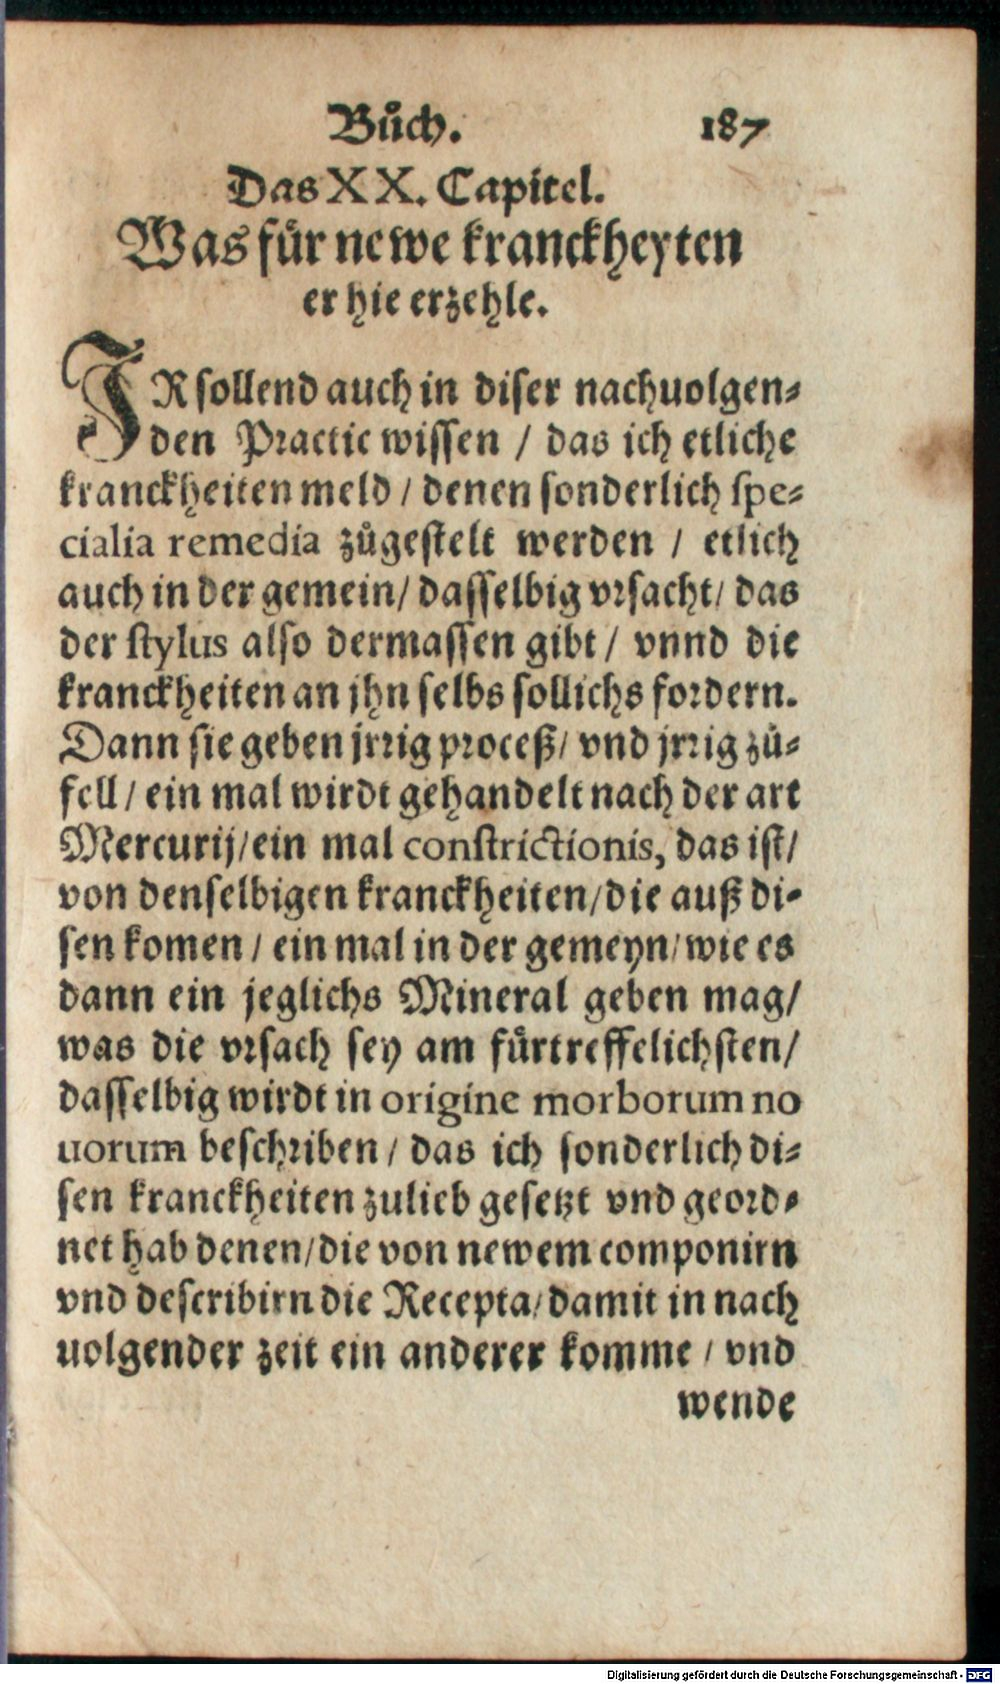 Bůch. 187
Das XX. Capitel.
Was für newe kranckheyten
er hie erzehle.
IR sollend auch in diser nachuolgen⸗
den Practic wissen / das ich etliche
kranckheiten meld / denen sonderlich spe⸗
cialia remedia zůgestelt werden / etlich
auch in der gemein / dasselbig vrsacht / das
der stylus also dermassen gibt / vnnd die
kranckheiten an jhn selbs sollichs fordern.
Dann sie geben jrrig proceß / vnd jrrig zů⸗
fell / ein mal wirdt gehandelt nach der art
Mercurij / ein mal constrictionis, das ist /
von denselbigen kranckheiten / die auß di⸗
sen komen / ein mal in der gemeyn / wie es
dann ein jeglichs Mineral geben mag /
was die vrsach sey am fürtreffelichsten /
dasselbig wirdt in origine morborum no
uorum beschriben / das ich sonderlich di⸗
sen kranckheiten zulieb gesetzt vnd geord⸗
net hab denen / die von newem componirn
vnd describirn die Recepta / damit in nach
uolgender zeit ein anderer komme / vnd
wende
Digitalisierung gefördert durch die Deutsche Forschungsgemeinschaft - DFG